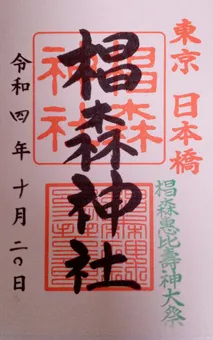 東京 日本橋
椙森恵比壽神大祭
椙森神社
椙森神社
令和四年十月二〇日